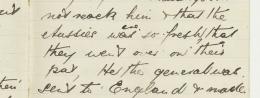 not reach him & that the
was so fresh that
they went over on their
pad. He the general was
sent to England & made